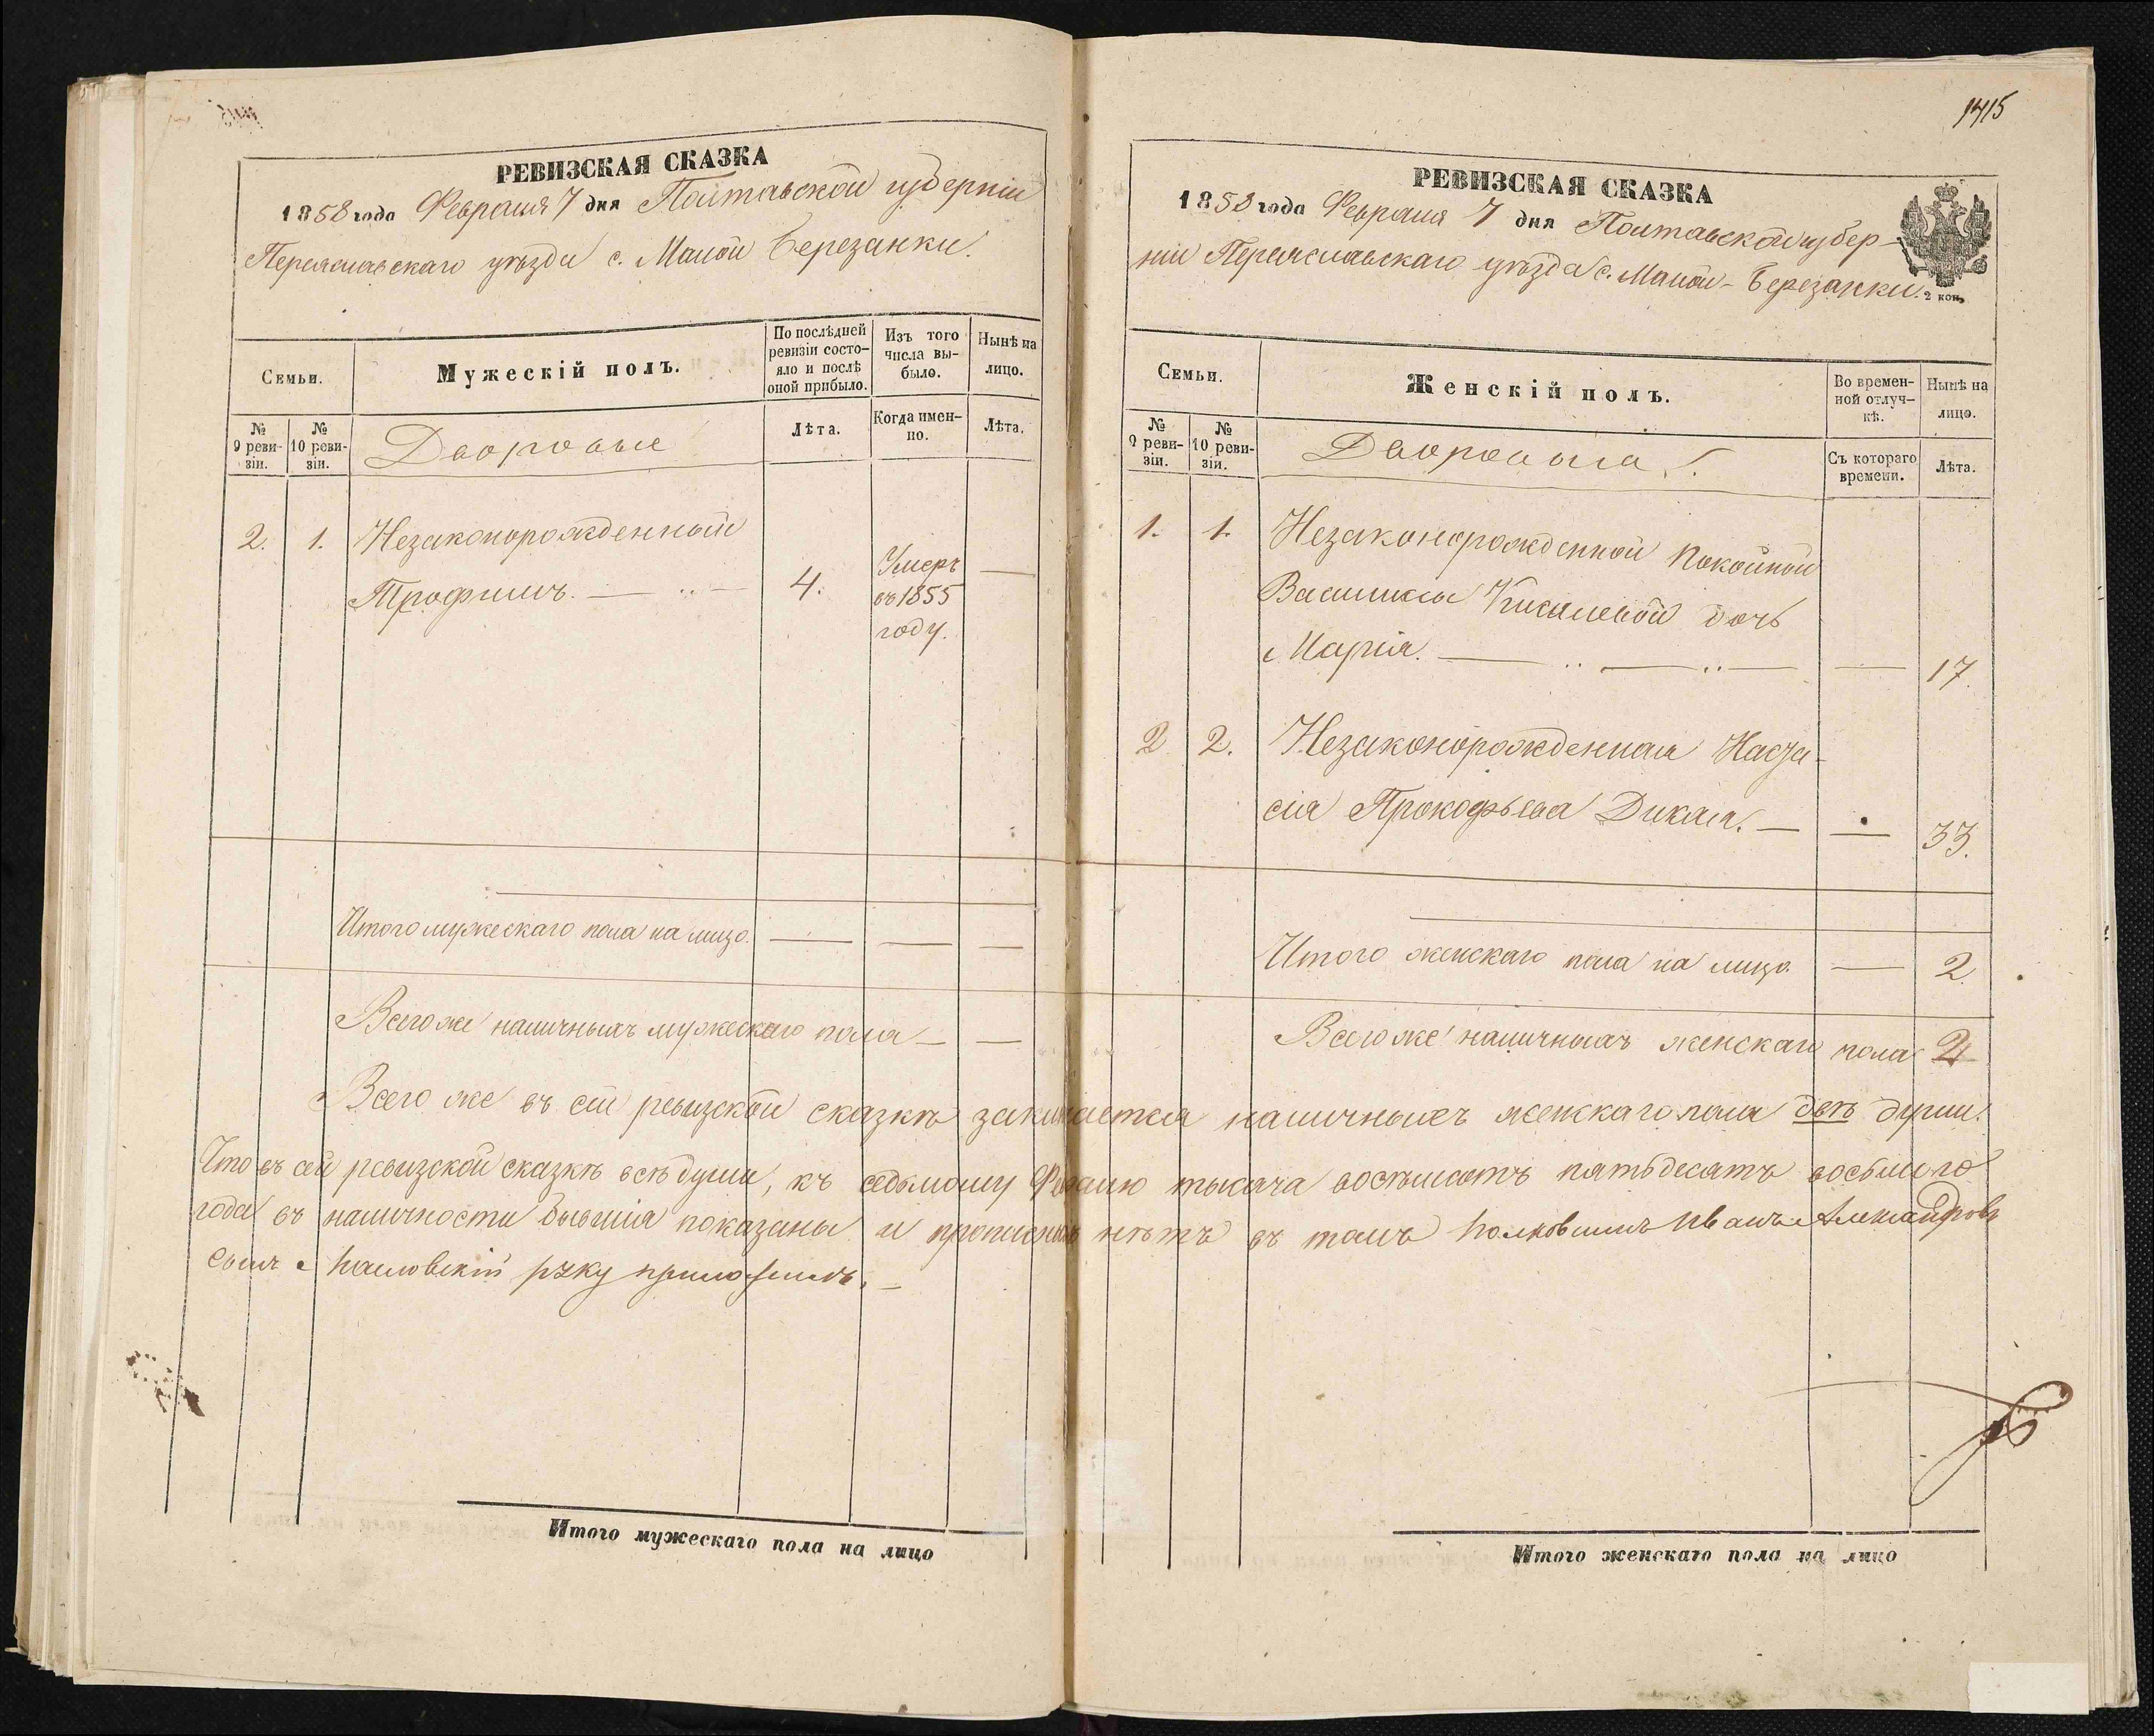 РЕВИЗСКАЯ СКАЗКА
1858 года Февраля 7 дня Полтавской губерніи
Переяславскаго уѣзда с. Малой Березанки.
Семьи.
Мужескій полъ.
По послѣдней ревизіи состояло и послѣ оной прибыло.
Изъ того числа выбыло.
Нынѣ на лицо.
№ 9 ревизіи.
№ 10 ревизіи.
Дворовые
Лѣта.
Когда именно.
Лѣта.
2. 1. Незаконорожденный
Трофимъ. — 4. Умеръ въ 1855 году. —
Итого мужескаго пола на лицо. — — —
Всего же наличныхъ мужескаго пола — —
1415
РЕВИЗСКАЯ СКАЗКА
1858 года Февраля 7 дня Полтавской губер-
ніи Переяславскаго уѣзда с. Малой-Березанки.
2 коп.
Семьи.
Женскій полъ.
Во временной отлучкѣ.
Нынѣ на лицо.
№ 9 ревизіи.
№ 10 ревизіи.
Дворовыя.
Съ котораго времени.
Лѣта.
1. 1. Незаконорожденной покойной
Василисы дочь
Марія. — — 17.
2 2. Незаконорожденная Наста-
сія Прокофьева Дикая. — — 33.
Итого женскаго пола на лицо — 2
Всего же наличныхъ женскаго пола 2
Всего же въ сей ревизской сказкѣ заключается наличныхъ женскаго пола двѣ души.
Что въ сей ревизской сказкѣ всѣ души, къ седьмому тысяча восемьсотъ пятьдесятъ восьмаго
года въ наличности бывшія показаны и прописныхъ нѣтъ въ томъ Иванъ Александровъ
сынъ руку приложилъ. —
Итого мужескаго пола на лицо
Итого женскаго пола на лицо